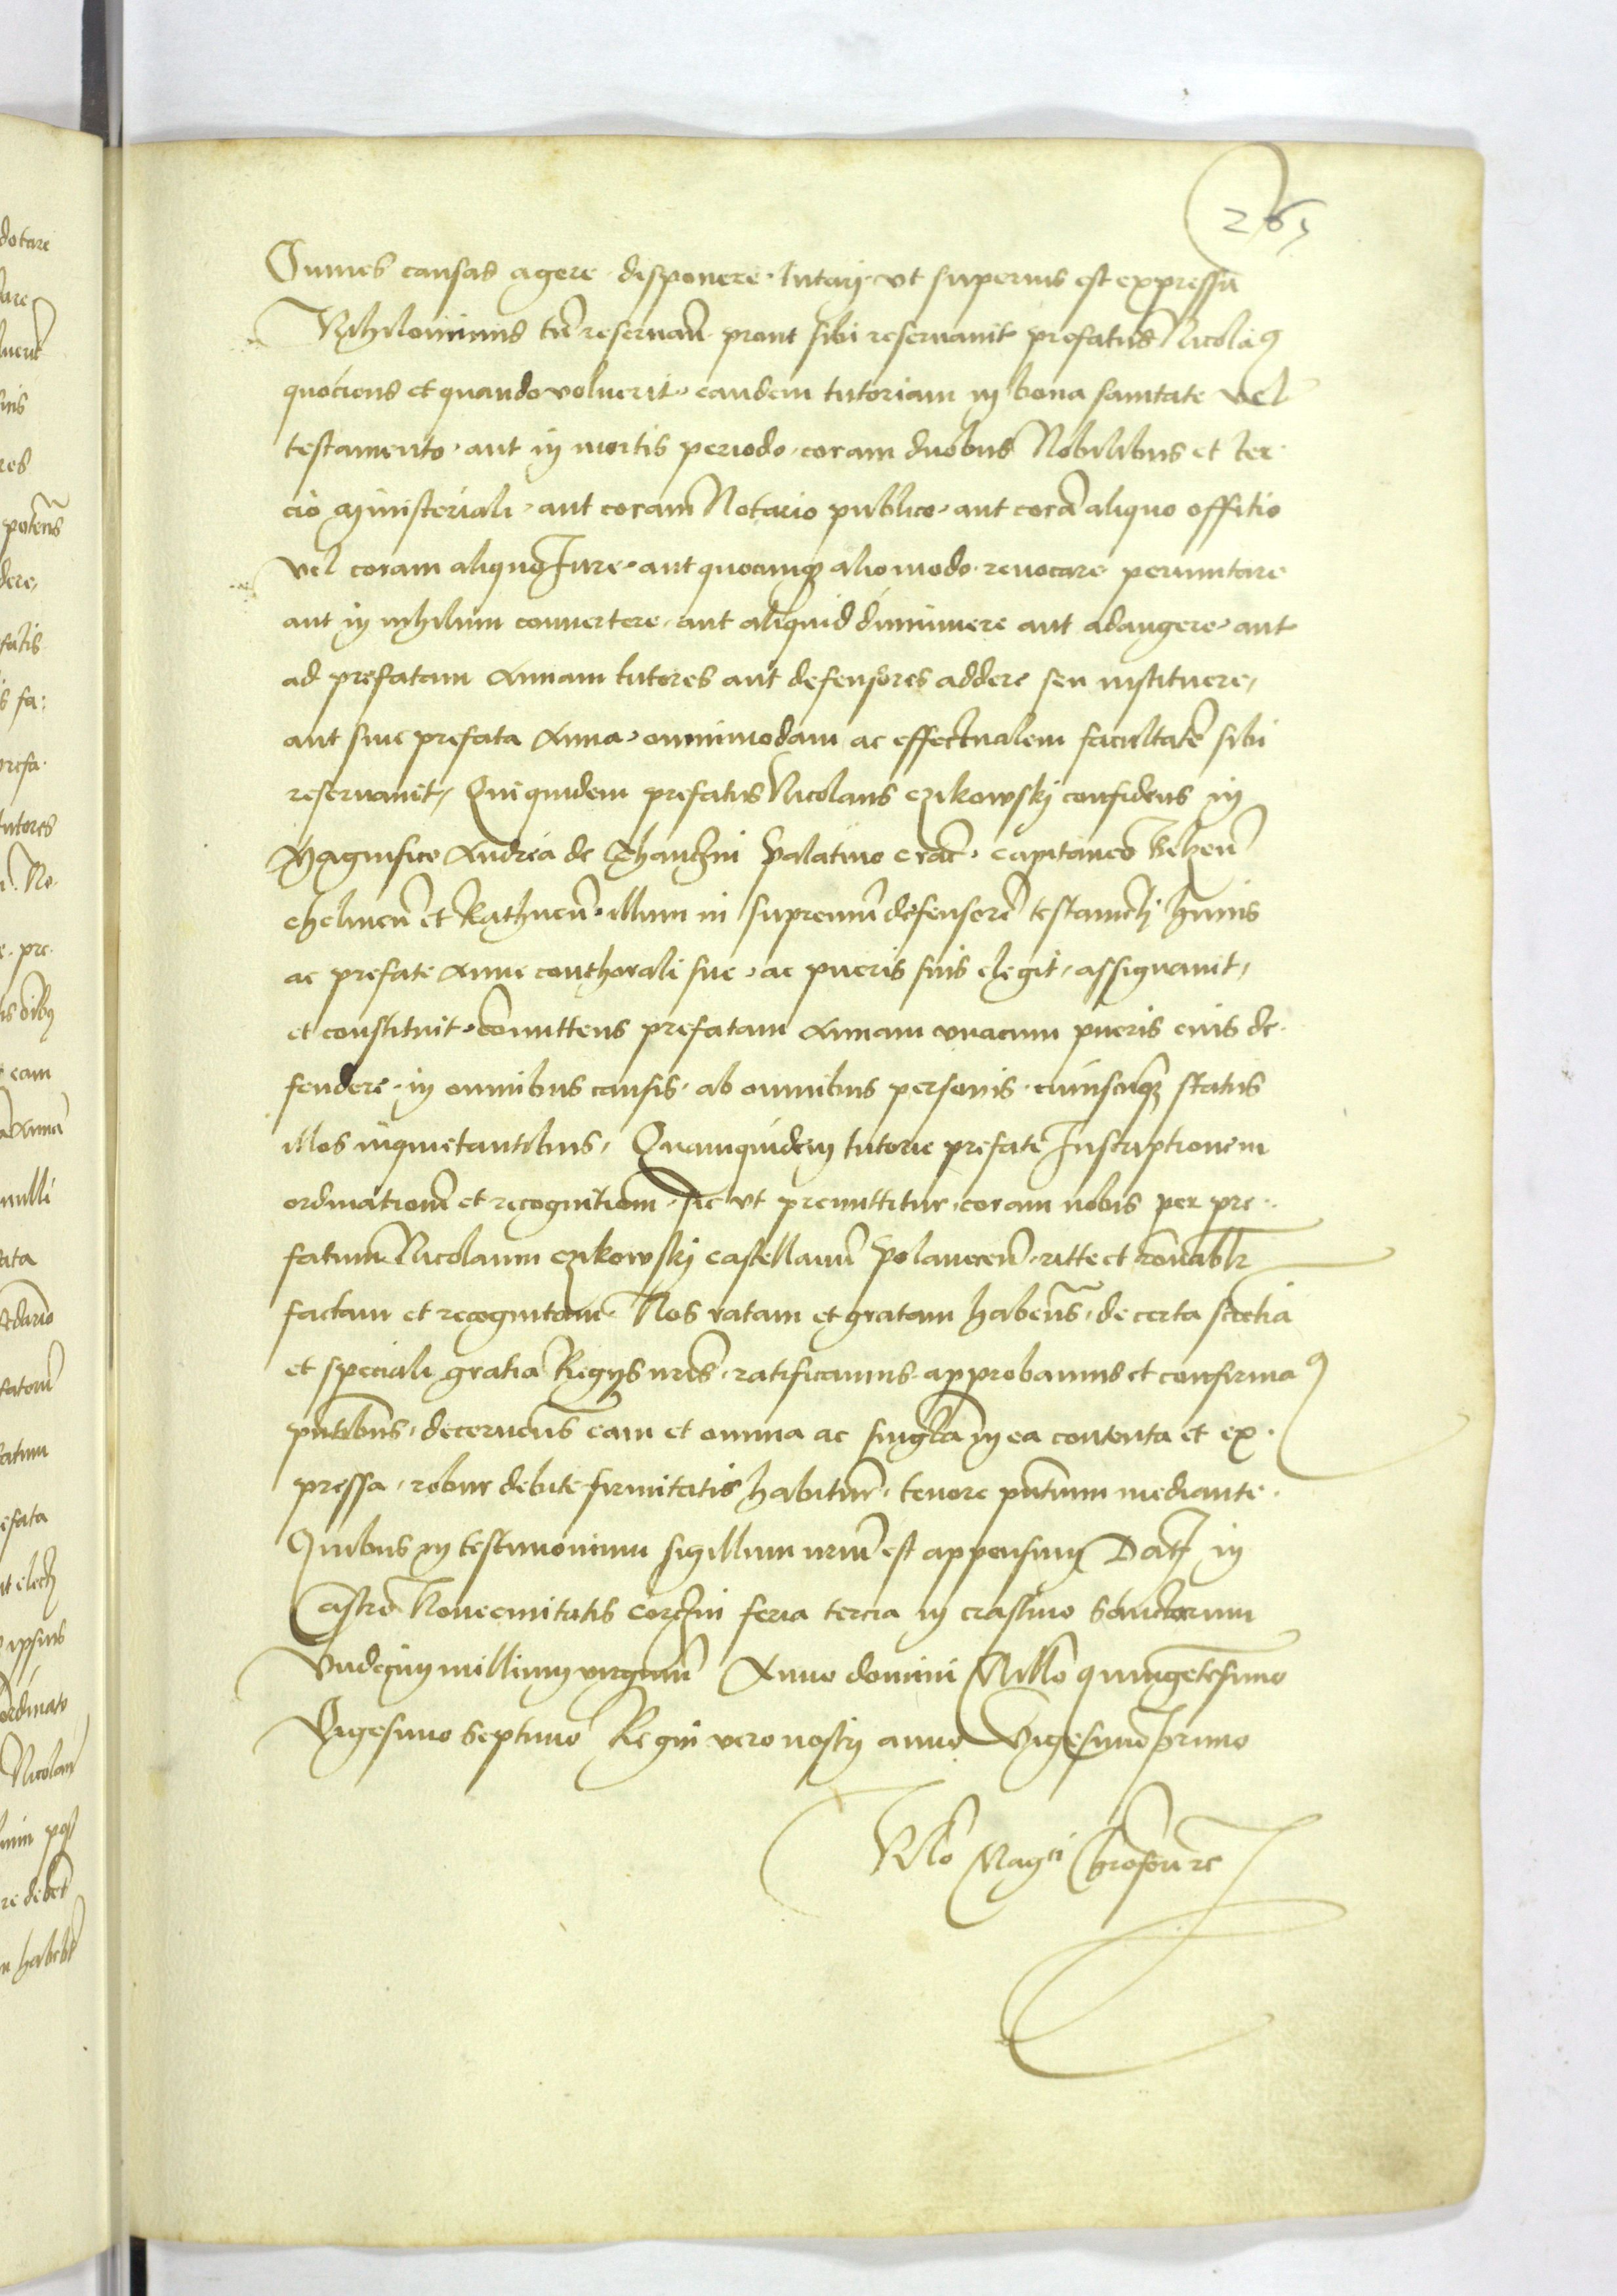 265
Omnes causas agere disponere tutarj ut superius est expressum
Nihilominus tn̄ reseruan̄ prout sibi reseruauit prefatus Nicola9
quociens et quando voluerit eandem tutoriam in bona sanitate vel
testamento aut in mortis periodo coram duobus Nobilibus et ter
cio ministeriali aut coram Notario publico aut corā aliquo offitio
vel coram aliquo Jure aut quocunq3 alio modo reuocare permutare
aut in nihilum conuertere aut aliquid diminuere aut adaugere aut
ad prefatam Annam tutores aut defensores addere seu instituere
aut sine prefata Anna omnimodam ac effectualem facultatē sibi
reseruauit, Qui quidem prefatus Nicolaus czikowskj confidens in
Magnifico Andrea de Thanczin Palatino crac̄ capitaneo Belzen̄
chelmen̄ et Rathnen̄ illum in supremū defensorē testamentj huius
ac prefate Anne conthorali sue ac pueris suis elegit, assignauit,
et constituit cōmittens prefatam Annam vnacum pueris eius de
fendere in omnibus causis ab omnibus personis cuiuscūq3 status
illos inquietantibus, Quamquidem tutorie prefate Inscriptionem
ordinationē et recognitionē sic ut premittitur coram nobis per pre
fatum Nicolaum czikowskj castellanū Polanecen̄ ritte et rōnabilr
factam et recognitam Nos ratam et gratam haben̄s, de certa sciētia
et speciali gratia Regijs nr̄is ratificamus approbamus et confirma9
pn̄tibus, decernen̄s eam et omnia ac singl̄a in ea contenta et ex
pressa, robur debite firmitatis habiturū tenore pn̄tium mediante
Quibus in testimonium sigillum nrūm est appensum Datj in
Castro Nouecmitatis corczin feria tercia in crastino Sanctorum
Vndecim millium virginū Anno domini Millō quingētesimo
Vigesimo Septimo Regni vero nostrj anno Vigesimo Primo